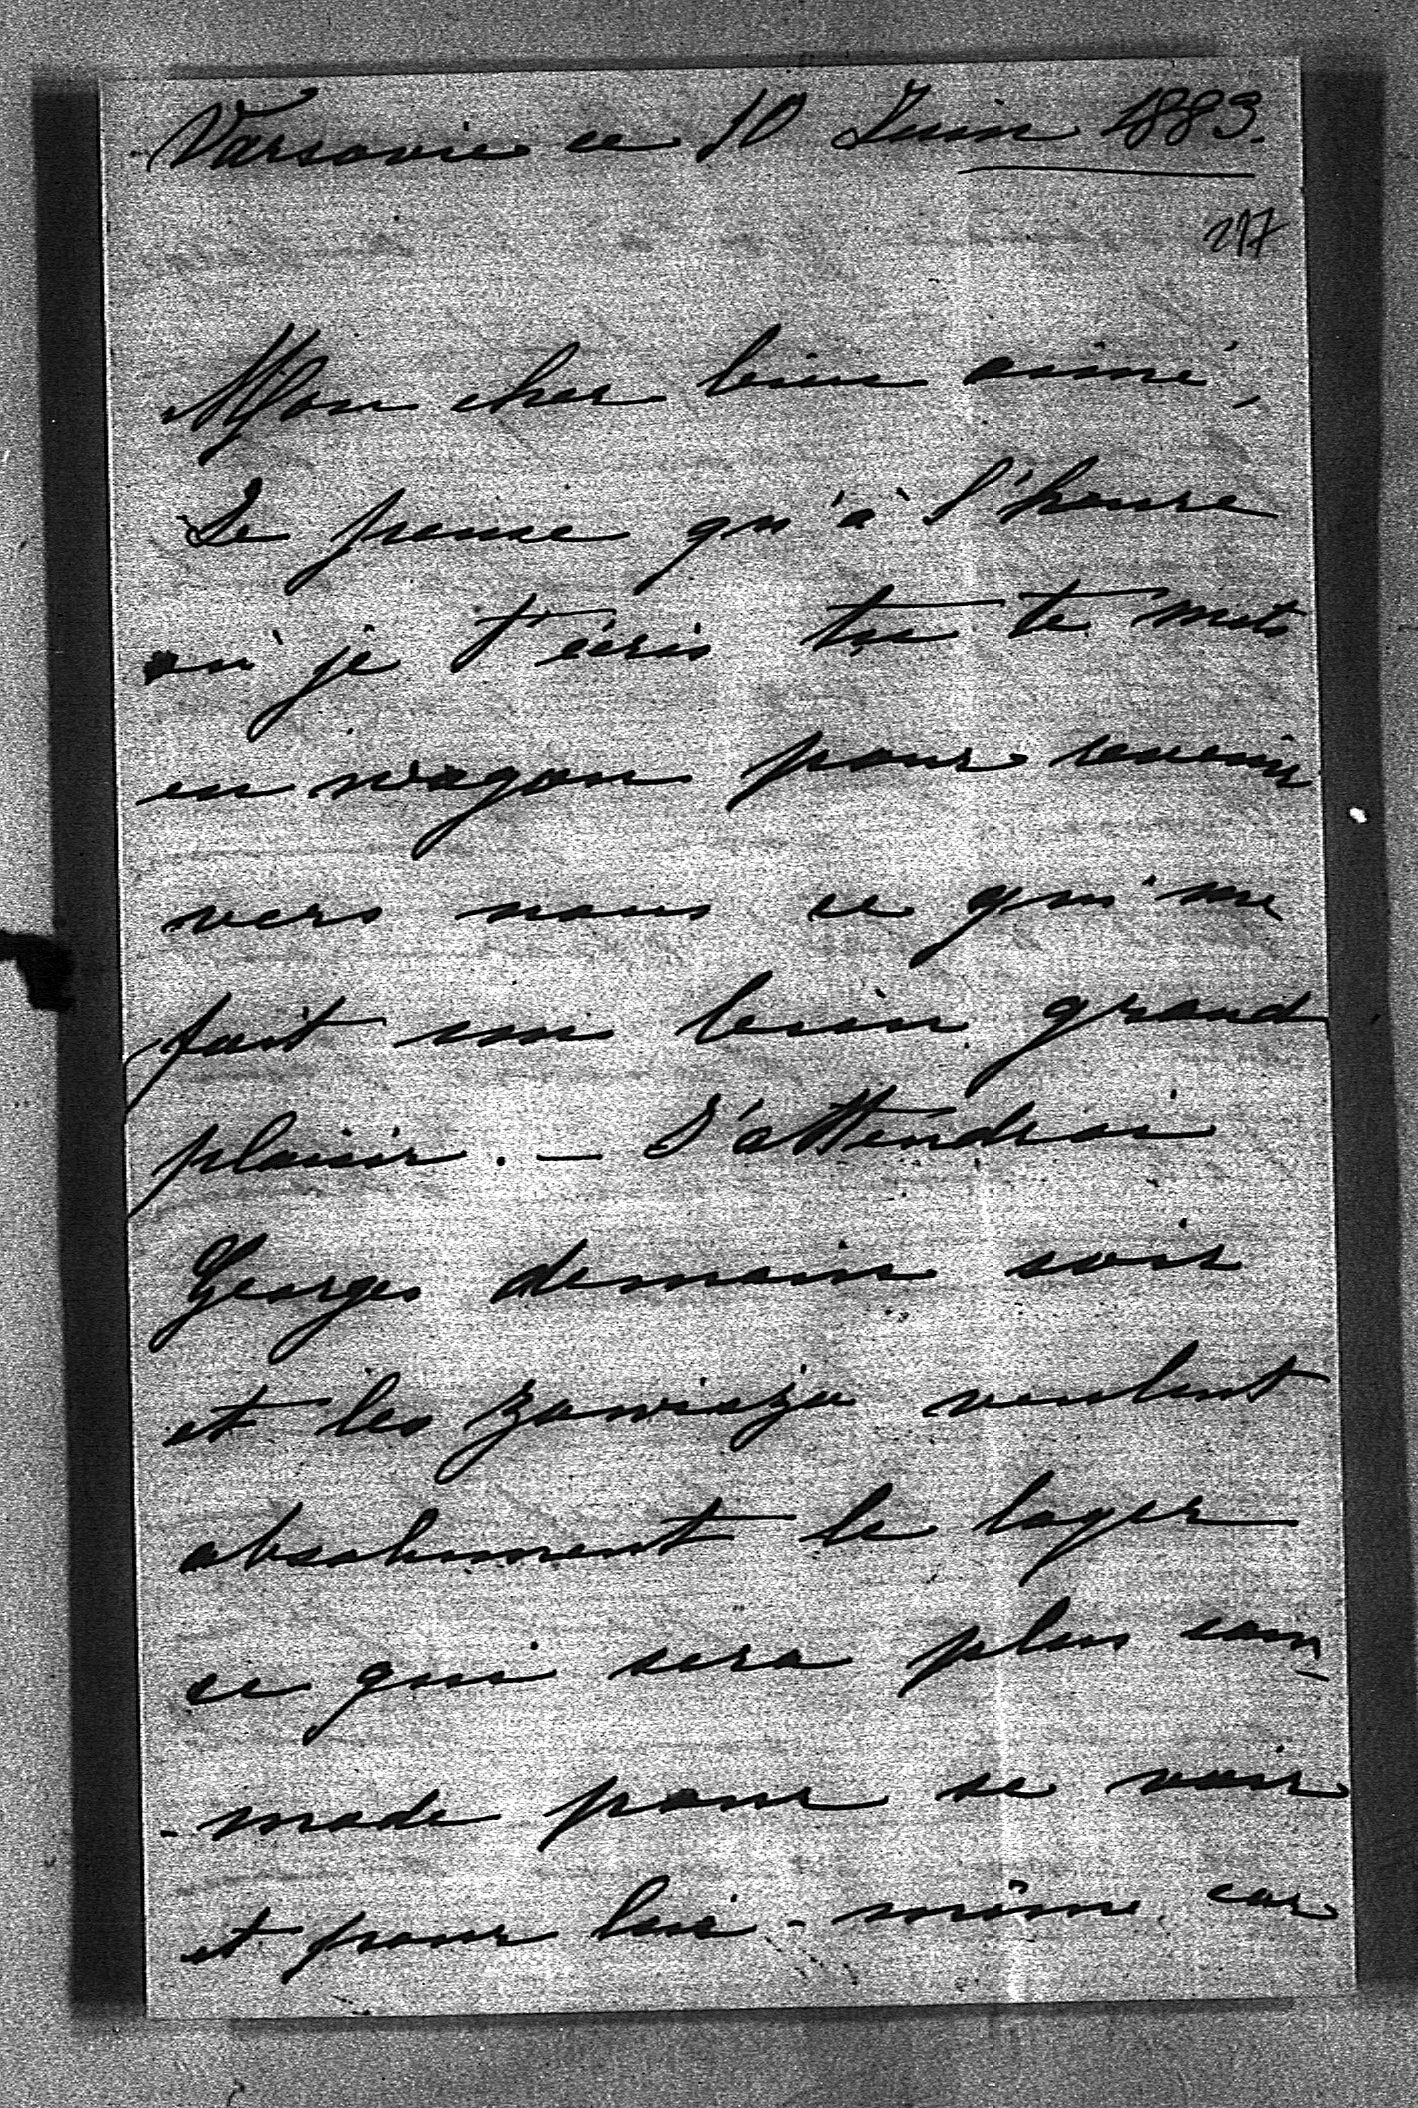 Varsovie ce 10 Juin 1883.
217
Mon cher bien aimé,
Je pense qu'à l'heure
où je t'écris tu te mets
en wagon pour revenir
vers nous ce qui me
fait un bien grand
plaisir. — J'attendrai
Georges demain soir
et les Zawisza veulent
absolument le loger
ce qui sera plus com-
-mode pour se voir
et pour lui-même car